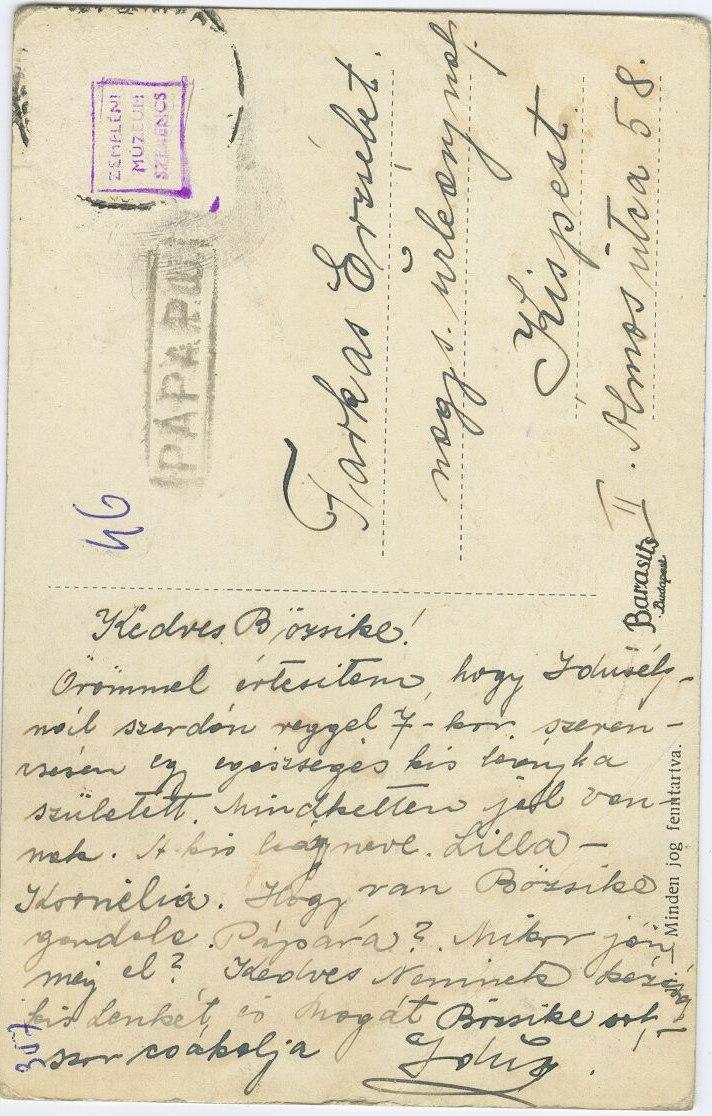 ZEMPLÉNI
MÚZEUM
SZERENCS
PÁPA
46
Farkas Erzsébet
nagys. úrleánynak
Kispest
II. Álmos útca 58.
Barasits
Budapest
Kedves Bözsike!
Örömmel értesitem, hogy Iduség-
nál szerdán reggel 7-kor szeren-
csésen egy egészséges kis leányka
született. Mindketten jól van-
nak. A kis neve Lilla-
Kornélia. Hogy van Bözsike
gondole Pápára? Mikor jön
meg el? Kedves Neninek
kis Lenkét, és magát Bözsike sok-
szor csókolja Idus.
357
— Minden jog fenntartva.